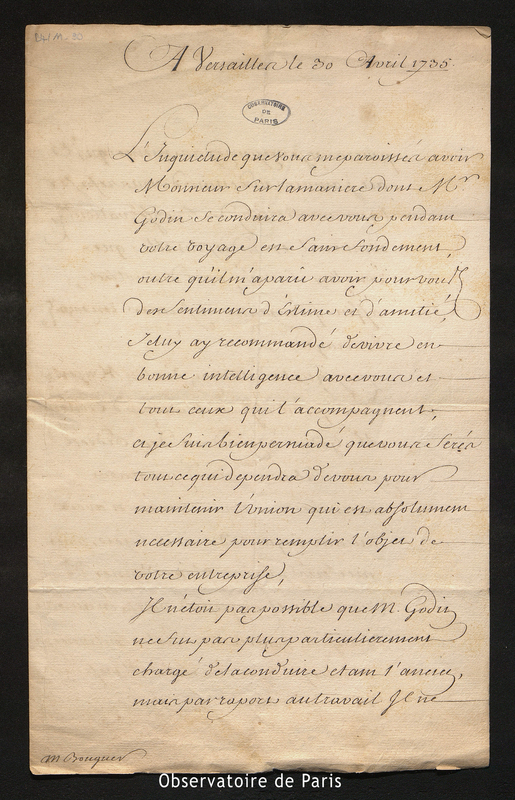 A Versailles le 30 Avril 1735.
OBSERVATOIRE
DE
PARIS
L'Inquietude que vous me paroissés avoir
Monsieur sur la maniere dont Mr
Godin se conduira avec vous pendant
votre voyage est sans fondement,
outre qu'il m'a paru avoir pour vous
des sentimens d'Estime et d'amitié,
Je luy ay recommandé de vivre en
bonne intelligence avec vous et
tous ceux qui l'accompagnent,
et je suis bien persuadé que vous ferés
tout ce qui dependra de vous pour
maintenir l'Union qui est absolument
necessaire pour remplir l'objet de
votre entreprise,
Il n'étoit pas possible que M. Godin
ne fut pas plus particulierement
chargé de la conduire etant l'ancien,
mais par raport au travail Il ne
M Bouguer
Observatoire de Paris